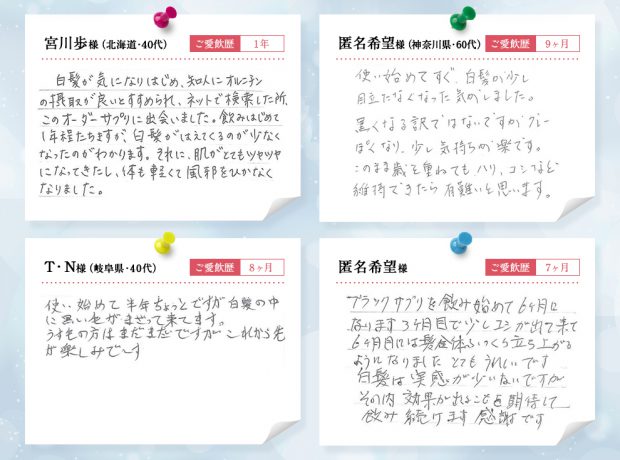 宮川歩様(北海道・40代)
ご愛飲歴 1年
白髪が気になりはじめ、知人にオルニチン
の摂取が良いとすすめられ、ネットで検索した所、
このオーダーサプリに出会いました。飲みはじめて
1年程たちますが、白髪がはえてくるのが少なく
なったのがわかります。それに、肌がとてもツヤツヤ
になってきたし、体も軽くて風邪をひかなく
なりました。
匿名希望様(神奈川県・60代)
ご愛飲歴 9ヶ月
使い始めてすぐ、白髪が少し
目立たなくなった気がしました。
黒くなる訳ではないですがグレー
ぽくなり、少し気持ちが楽です。
このまま歳を重ねても、ハリ、コシなど
維持できたら有難いと思います。
T・N様(岐阜県・40代)
ご愛飲歴 8ヶ月
使い始めて半年ちょっとですが白髪の中
に黒い毛がまざって来てます。
うす毛の方はまだまだですがこれから先
が楽しみです
匿名希望様
ご愛飲歴 7ヶ月
ブラックサプリを飲み始めて6ヶ月に
なります3ヶ月目で少しコシが出て来て
6ヶ月目には髪全体ふっくら立ち上がる
ようになりましたとてもうれしいです
白髪は実感が少いないですが
その内効果が出ることを期待して
飲み続けます感謝です